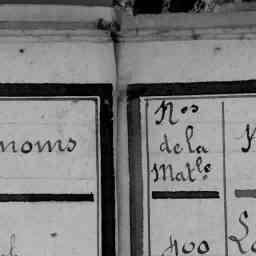 noms
Nos
de la
Matle
400